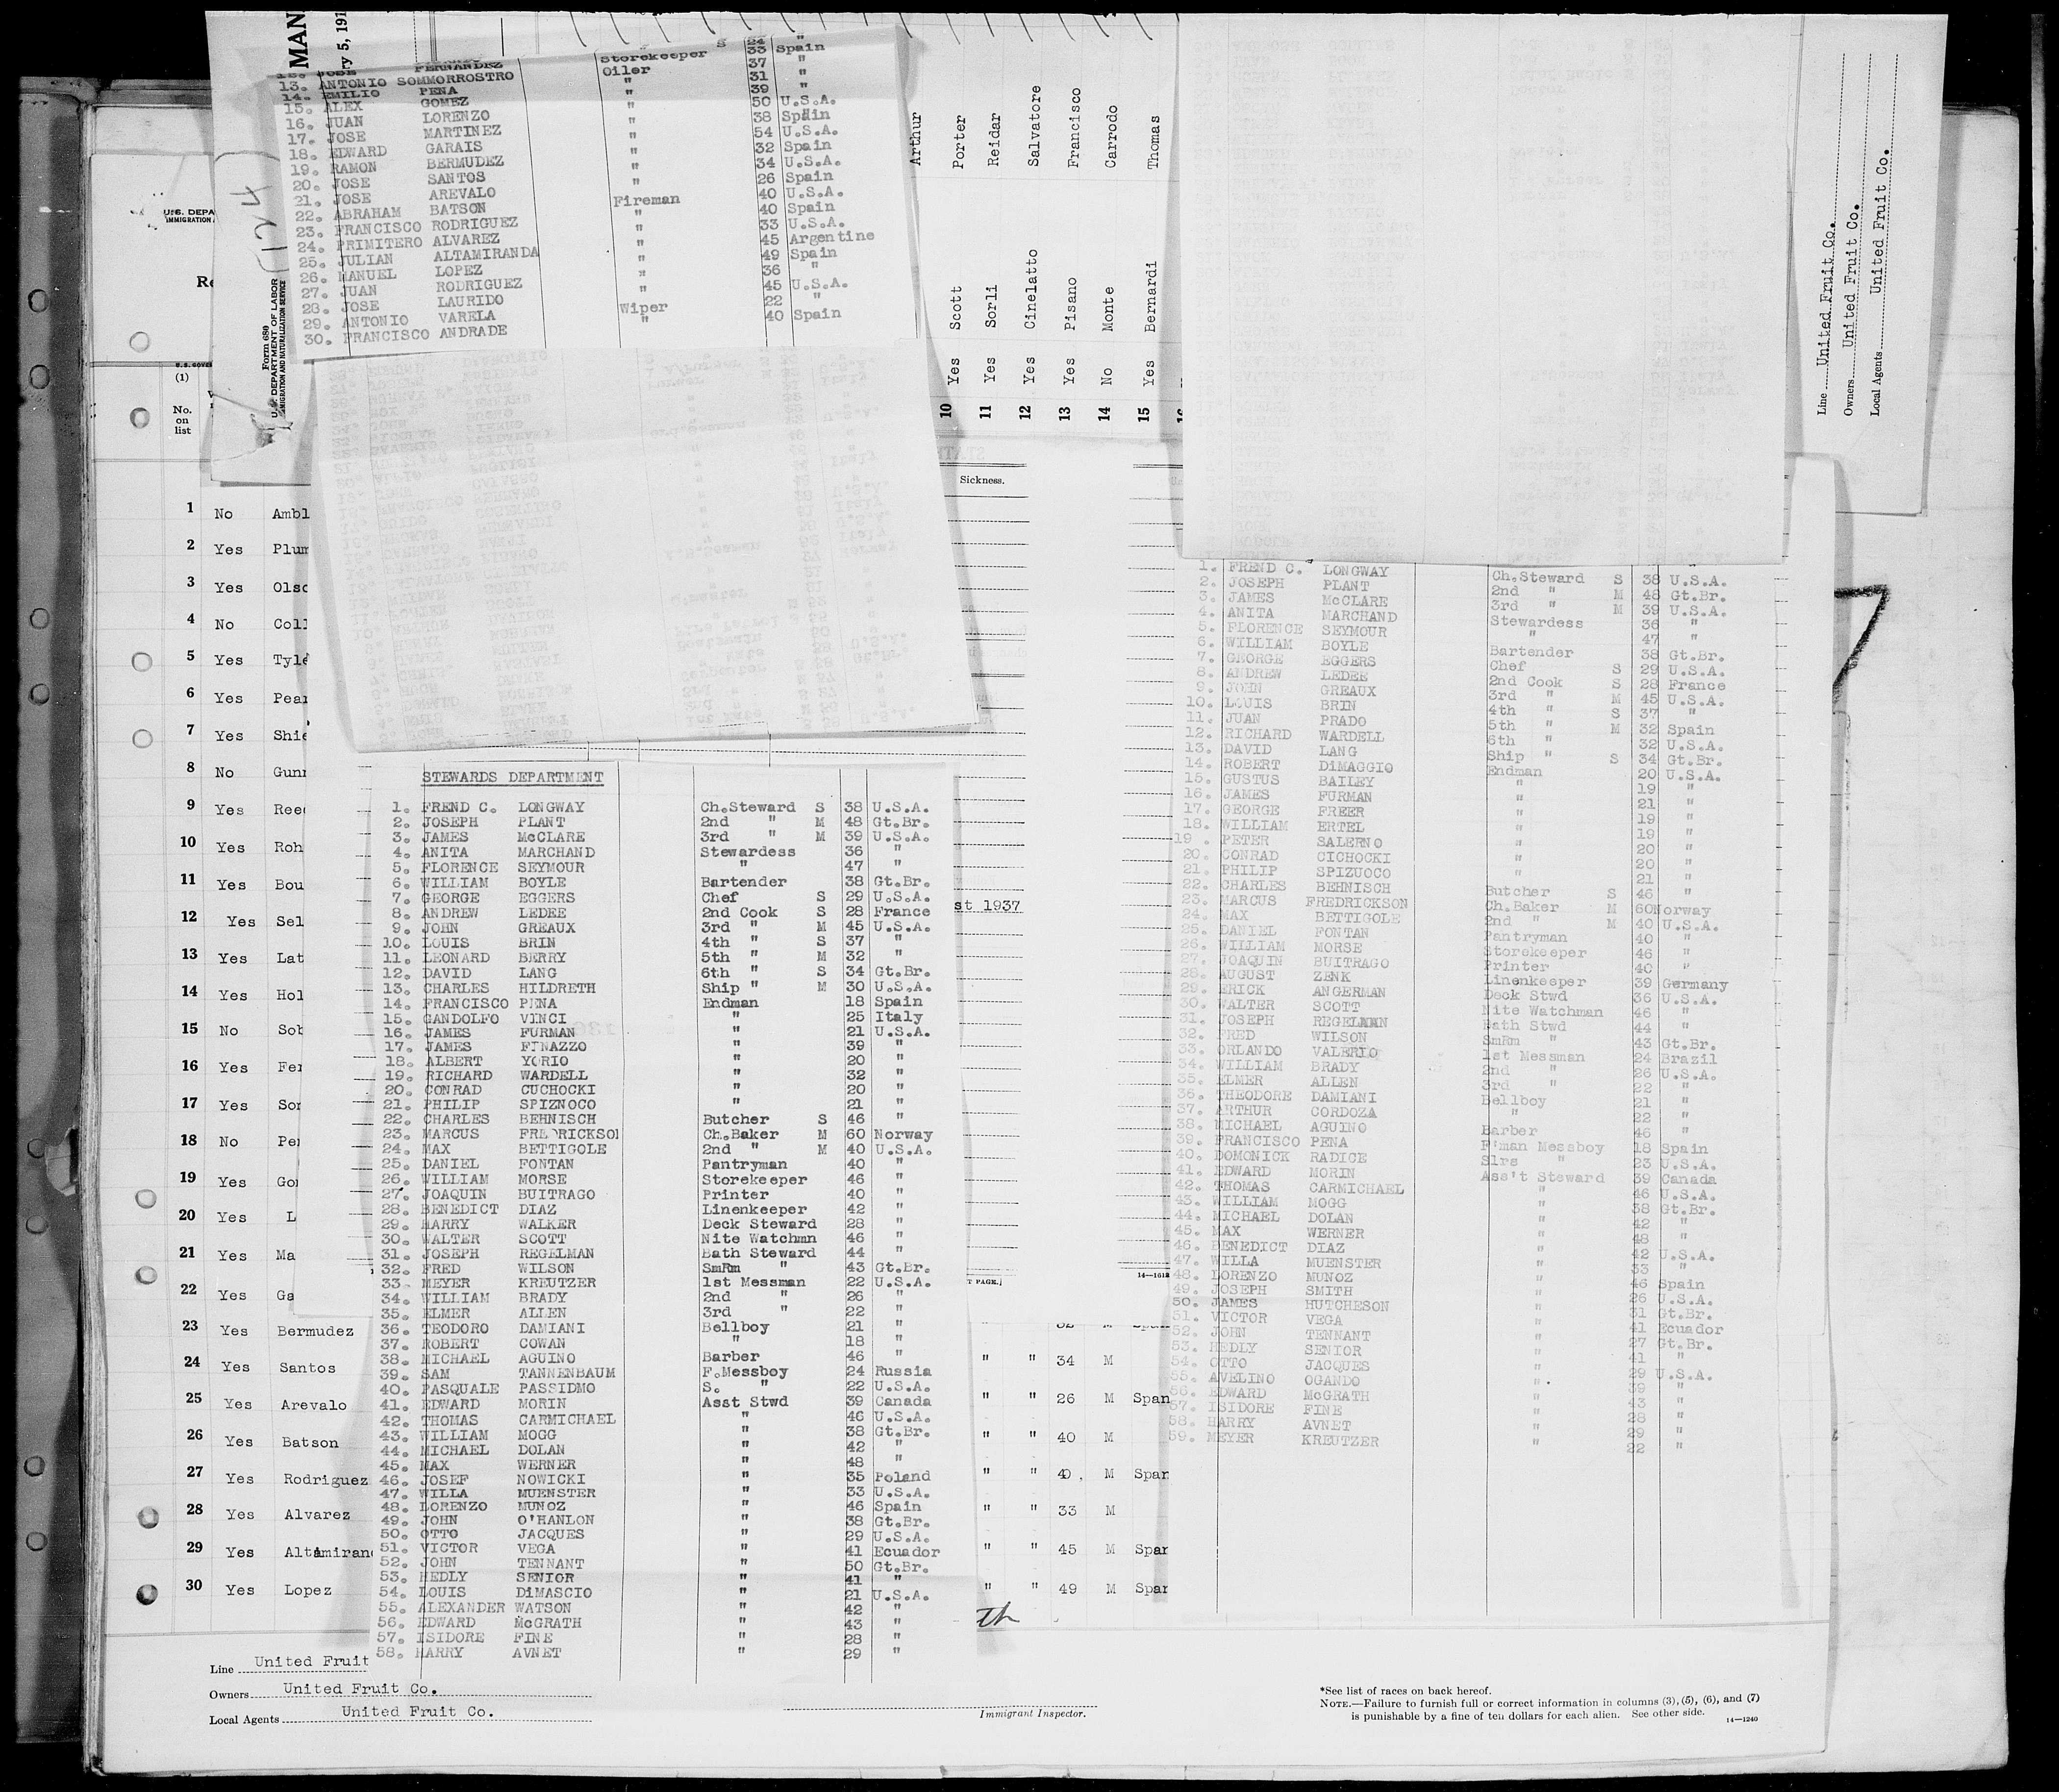 MAN
ry 5, 191
FERNANDEZ Storekeeper 33 Spain
13. ANTONIO SOMMORROSTRO Oiler 37 "
14. EMILIO PENA " 31 "
15. ALEX GOMEZ " 39 "
16. JUAN LORENZO " 50 U.S.A.
17. JOSE MARTINEZ " 38 Spain
18. EDWARD GARAIS " 54 U.S.A.
19. RAMON BERMUDEZ " 32 Spain
20. JOSE SANTOS " 34 U.S.A.
21. JOSE AREVALO " 26 Spain
22. ABRAHAM BATSON Fireman 40 U.S.A.
23. FRANCISCO RODRIGUEZ " 40 Spain
24. PRIMITERO ALVAREZ " 33 U.S.A.
25. JULIAN ALTAMIRANDA " 45 Argentine
26. MANUEL LOPEZ " 49 Spain
27. JUAN RODRIGUEZ " 36 "
28. JOSE LAURIDO " 45 U.S.A.
29. ANTONIO VARELA Wiper 22 "
30. FRANCISCO ANDRADE " 40 Spain
124
U.S. DEPA
IMMIGRATION
Re
Form 680
U.S. DEPARTMENT OF LABOR
IMMIGRATION AND NATURALIZATION SERVICE
U.S. GOVE
(1)
No.
on
list
Arthur
10 Yes Scott Porter
11 Yes Sorli Reidar
12 Yes Cinelatto Salvatore
13 Yes Pisano Francisco
14 No Monte Carrodo
15 Yes Bernardi Thomas
Line United Fruit Co.
Owners United Fruit Co.
Local Agents United Fruit Co.
Sickness.
1 No Ambl
2 Yes Plum
3 Yes Olso
4 No Coll
5 Yes Tyle
6 Yes Pear
7 Yes Shie
8 No Gunn
9 Yes Reed
10 Yes Roh
11 Yes Bou
12 Yes Sel
13 Yes Lat
14 Yes Hol
15 No Sob
16 Yes Fer
17 Yes Sor
18 No Per
19 Yes Gon
20 Yes L
21 Yes Ma
22 Yes Ga
23 Yes Bermudez
24 Yes Santos " " 34 M
25 Yes Arevalo " " 26 M Span
26 Yes Batson " " 40 M
27 Yes Rodriguez " " 40 M Span
28 Yes Alvarez " " 33 M
29 Yes Altamirand " " 45 M Span
30 Yes Lopez " " 49 M Span
st 1937
T PAGE.]
14—1618
STEWARDS DEPARTMENT
1. FREND C. LONGWAY Ch.Steward S 38 U.S.A.
2. JOSEPH PLANT 2nd " M 48 Gt.Br.
3. JAMES McCLARE 3rd " M 39 U.S.A.
4. ANITA MARCHAND Stewardess 36 "
5. FLORENCE SEYMOUR " 47 "
6. WILLIAM BOYLE Bartender 38 Gt.Br.
7. GEORGE EGGERS Chef S 29 U.S.A.
8. ANDREW LEDEE 2nd Cook S 28 France
9. JOHN GREAUX 3rd " M 45 U.S.A.
10. LOUIS BRIN 4th " S 37 "
11. LEONARD BERRY 5th " M 32 "
12. DAVID LANG 6th " S 34 Gt.Br.
13. CHARLES HILDRETH Ship " M 30 U.S.A.
14. FRANCISCO PENA Endman 18 Spain
15. GANDOLFO VINCI " 25 Italy
16. JAMES FURMAN " 21 U.S.A.
17. JAMES FINAZZO " 39 "
18. ALBERT YORIO " 20 "
19. RICHARD WARDELL " 32 "
20. CONRAD CUCHOCKI " 20 "
21. PHILIP SPIZNOCO " 21 "
22. CHARLES BEHNISCH Butcher S 46 "
23. MARCUS FREDRICKSON Ch.Baker M 60 Norway
24. MAX BETTIGOLE 2nd " M 40 U.S.A.
25. DANIEL FONTAN Pantryman 40 "
26. WILLIAM MORSE Storekeeper 46 "
27. JOAQUIN BUITRAGO Printer 40 "
28. BENEDICT DIAZ Linenkeeper 42 "
29. HARRY WALKER Deck Steward 28 "
30. WALTER SCOTT Nite Watchmn 46 "
31. JOSEPH REGELMAN Bath Steward 44 "
32. FRED WILSON SmRm " 43 Gt.Br.
33. MEYER KREUTZER 1st Messman 22 U.S.A.
34. WILLIAM BRADY 2nd " 26 "
35. ELMER ALLEN 3rd " 22 "
36. TEODORO DAMIANI Bellboy 21 "
37. ROBERT COWAN " 18 "
38. MICHAEL AGUINO Barber 46 "
39. SAM TANNENBAUM F.Messboy 24 Russia
40. PASQUALE PASSIDMO S. " 22 U.S.A.
41. EDWARD MORIN Asst Stwd 39 Canada
42. THOMAS CARMICHAEL " 46 U.S.A.
43. WILLIAM MOGG " 38 Gt.Br.
44. MICHAEL DOLAN " 42 "
45. MAX WERNER " 48 "
46. JOSEF NOWICKI " 35 Poland
47. WILLA MUENSTER " 33 U.S.A.
48. LORENZO MUNOZ " 46 Spain
49. JOHN O'HANLON " 38 Gt.Br.
50. OTTO JACQUES " 29 U.S.A.
51. VICTOR VEGA " 41 Ecuador
52. JOHN TENNANT " 50 Gt.Br.
53. HEDLY SENIOR " 41 "
54. LOUIS DiMASCIO " 21 U.S.A.
55. ALEXANDER WATSON " 42 "
56. EDWARD McGRATH " 43 "
57. ISIDORE FINE " 28 "
58. HARRY AVNET " 29 "
1. FREND C. LONGWAY Ch.Steward S 38 U.S.A.
2. JOSEPH PLANT 2nd " M 48 Gt.Br.
3. JAMES McCLARE 3rd " M 39 U.S.A.
4. ANITA MARCHAND Stewardess 36 "
5. FLORENCE SEYMOUR " 47 "
6. WILLIAM BOYLE Bartender 38 Gt.Br.
7. GEORGE EGGERS Chef S 29 U.S.A.
8. ANDREW LEDEE 2nd Cook S 28 France
9. JOHN GREAUX 3rd " M 45 U.S.A.
10. LOUIS BRIN 4th " S 37 "
11. JUAN PRADO 5th " M 32 Spain
12. RICHARD WARDELL 6th " 32 U.S.A.
13. DAVID LANG Ship " S 34 Gt.Br.
14. ROBERT DiMAGGIO Endman 20 U.S.A.
15. GUSTUS BAILEY " 19 "
16. JAMES FURMAN " 21 "
17. GEORGE FREER " 19 "
18. WILLIAM ERTEL " 19 "
19. PETER SALERNO " 20 "
20. CONRAD CICHOCKI " 20 "
21. PHILIP SPIZUOCO " 21 "
22. CHARLES BEHNISCH Butcher S 46 "
23. MARCUS FREDRICKSON Ch.Baker M 60 Norway
24. MAX BETTIGOLE 2nd " M 40 U.S.A.
25. DANIEL FONTAN Pantryman 40 "
26. WILLIAM MORSE Storekeeper 46 "
27. JOAQUIN BUITRAGO Printer 40 "
28. AUGUST ZENK Linenkeeper 39 Germany
29. ERICK ANGERMAN Deck Stwd 36 U.S.A.
30. WALTER SCOTT Nite Watchman 46 "
31. JOSEPH REGELMAN Bath Stwd 44 "
32. FRED WILSON SmRm " 43 Gt.Br.
33. ORLANDO VALERIO 1st Messman 24 Brazil
34. WILLIAM BRADY 2nd " 26 U.S.A.
35. ELMER ALLEN 3rd " 22 "
36. THEODORE DAMIANI Bellboy 21 "
37. ARTHUR CORDOZA " 22 "
38. MICHAEL AGUINO Barber 46 "
39. FRANCISCO PENA F'man Messboy 18 Spain
40. DOMONICK RADICE Slrs " 23 U.S.A.
41. EDWARD MORIN Ass't Steward 39 Canada
42. THOMAS CARMICHAEL " 46 U.S.A.
43. WILLIAM MOGG " 38 Gt.Br.
44. MICHAEL DOLAN " 42 "
45. MAX WERNER " 48 "
46. BENEDICT DIAZ " 42 U.S.A.
47. WILLA MUENSTER " 33 "
48. LORENZO MUNOZ " 46 Spain
49. JOSEPH SMITH " 26 U.S.A.
50. JAMES HUTCHESON " 31 Gt.Br.
51. VICTOR VEGA " 41 Ecuador
52. JOHN TENNANT " 27 Gt.Br.
53. HEDLY SENIOR " 41 "
54. OTTO JACQUES " 29 U.S.A.
55. AVELINO OGANDO " 39 "
56. EDWARD McGRATH " 43 "
57. ISIDORE FINE " 28 "
58. HARRY AVNET " 29 "
59. MEYER KREUTZER " 22 "
Line United Fruit
Owners United Fruit Co.
Local Agents United Fruit Co.
Immigrant Inspector.
*See list of races on back hereof.
NOTE.—Failure to furnish full or correct information in columns (3), (5), (6), and (7)
is punishable by a fine of ten dollars for each alien. See other side.
14—1240